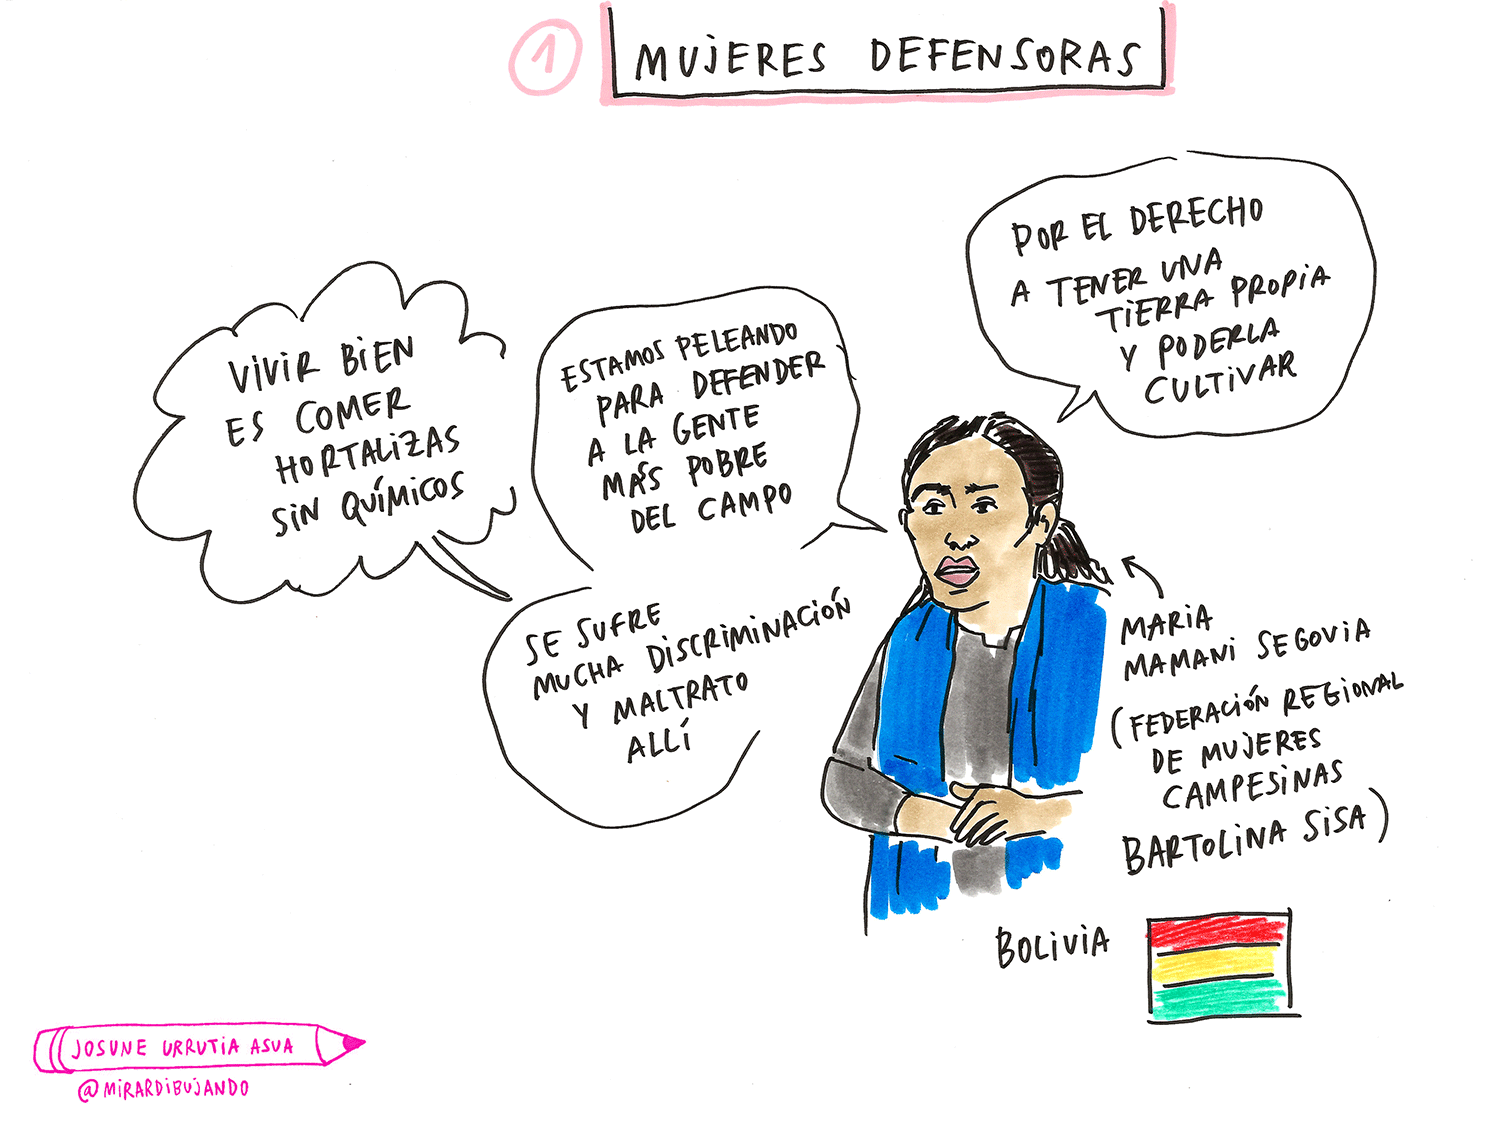 1
MUJERES DEFENSORAS
POR EL DERECHO
A TENER UNA
TIERRA PROPIA
Y PODERLA
CULTIVAR
ESTAMOS PELEANDO
PARA DEFENDER
A LA GENTE
MÁS POBRE
DEL CAMPO
VIVIR BIEN
ES COMER
HORTALIZAS
SIN QUÍMICOS
SE SUFRE
MUCHA DISCRIMINACIÓN
Y MALTRATO
ALLÍ
MARIA
MAMANI SEGOVIA
(FEDERACIÓN REGIONAL
DE MUJERES
CAMPESINAS
BARTOLINA SISA)
BOLIVIA
JOSUNE URRUTIA ASUA
@MIRARDIBUJANDO